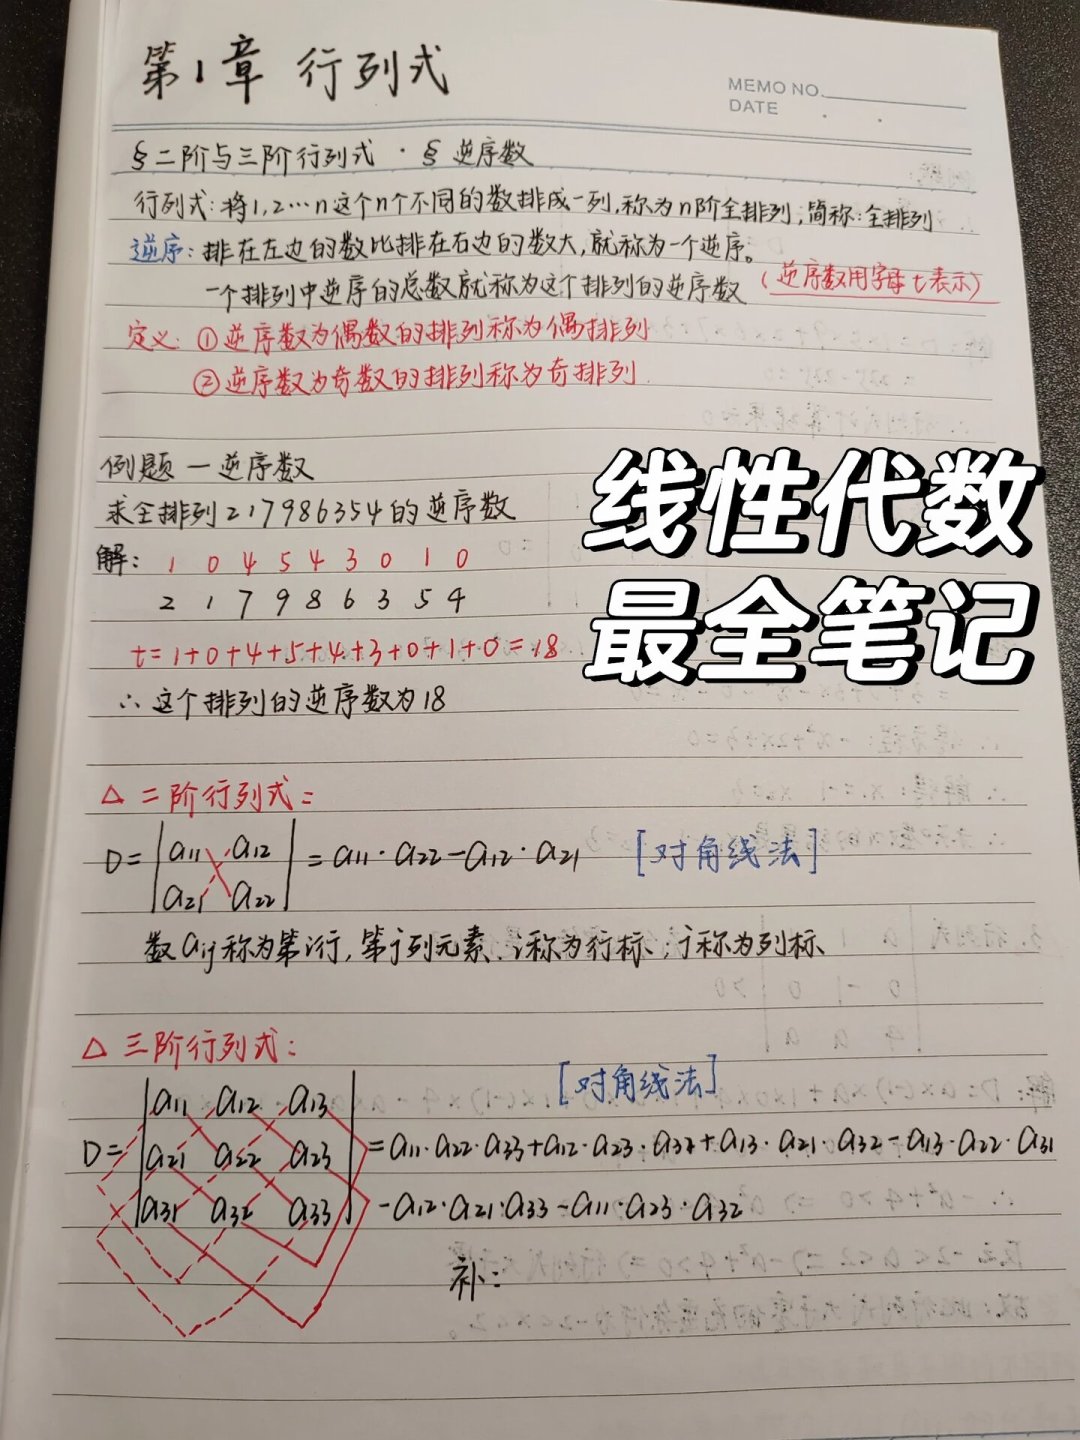 第1章 行列式
MEMO NO.
DATE
§二阶与三阶行列式 · § 逆序数
行列式:将1,2…n这个n个不同的数排成一列,称为n阶全排列,简称:全排列
逆序:排在左边的数比排在右边的数大,就称为一个逆序。
一个排列中逆序的总数就称为这个排列的逆序数 (逆序数用字母t表示)
定义:①逆序数为偶数的排列称为偶排列
②逆序数为奇数的排列称为奇排列.
例题一逆序数
求全排列217986354的逆序数
解: 1 0 4 5 4 3 0 1 0
2 1 7 9 8 6 3 5 4
t=1+0+4+5+4+3+0+1+0=18
∴这个排列的逆序数为18
线性代数
最全笔记
△ 二阶行列式:
D= | a11 a12 | = a11·a22-a12·a21 [对角线法]
| a21 a22 |
数aij称为第i行,第j列元素.i称为行标;j称为列标.
△ 三阶行列式:
[对角线法]
| a11 a12 a13 |
D= | a21 a22 a23 | =a11·a22·a33+a12·a23·a37+a13·a21·a32-a13·a22·a31
| a31 a32 a33 | -a12·a21·a33-a11·a23·a32
补: